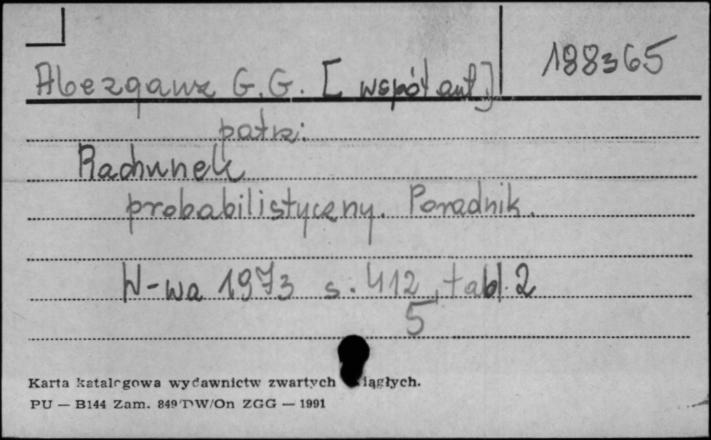 188365
Abezgauz G.G. [współaut.]
patrz:
Rachunek
probabilistyczny. Poradnik.
W-wa 1973 s. 412, tabl. 2
5
Karta katalogowa wydawnictw zwartych iągłych.
PU — B144 Zam. 849/DW/On ZGG — 1991